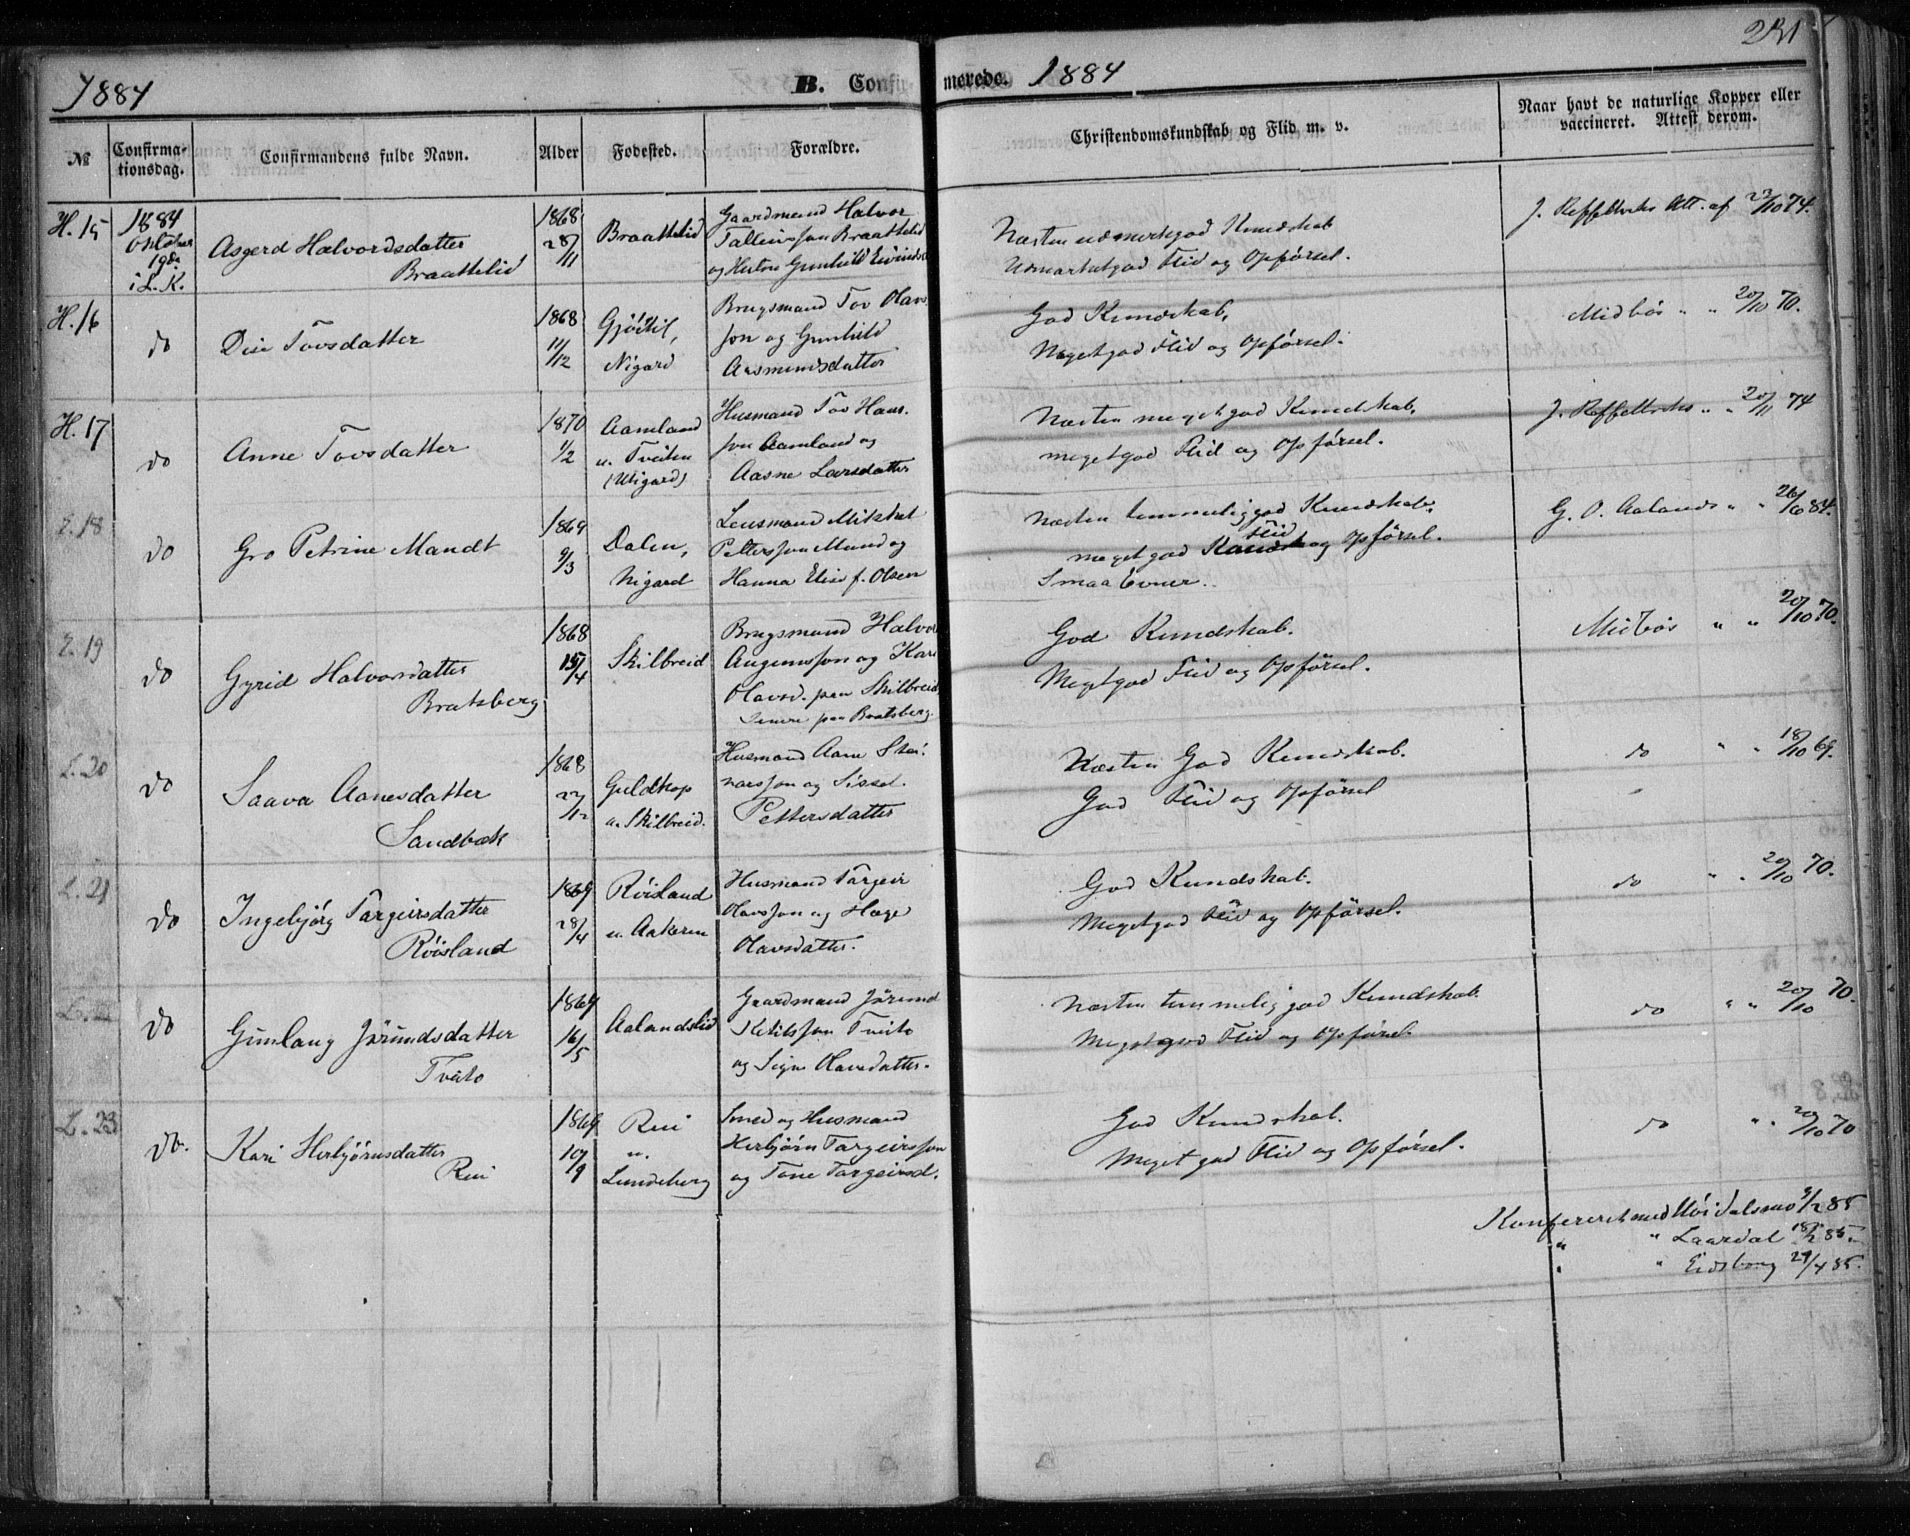 1884
B. Confirmerede. 1884
231
№
Confirma-
tionsdag.
Confirmandens fulde Navn.
Alder
Fødested.
Forældre.
Christendomskundskab og Flid m. v.
Naar havt de naturlige Kopper eller
vaccineret. Attest derom.
H. 15
1884
Oktober
19de
i L. K.
Asgerd Halvordsdatter
Braattelid
1868
28/11
Braattelid
Gaardmand Halvor
Talleivsson Braattelid
og Hustru Gunhild Eivindsd
Næsten udmerketgod Kundskab
Udmærketgod Flid og Opførsel.
J. Reffelbeks Att. af 23/10 74.
H. 16
do
Dise Tovsdatter
1868
11/12
Gjøitil,
Nigard
Brugsmand Tov Olavs
son og Gunhild
Aasmundsdatter
God Kundskab,
Megetgod Flid og Opførsel.
Midbøs " " 20/10 70.
H. 17
do
Anne Tovsdatter
1870
1/2
Aamland
u. Tveiten
(Utigard)
Husmand Tov Hans-
son Aamland og
Aasne Larsdatter
Næsten megetgod Kundskab,
megetgod Flid og Opførsel.
J. Reffelbeks " " 20/11 74
L. 18
do
Gro Petrine Mandt
1869
9/3
Dalen,
Nigard
Lensmand Mikkel
Pettersson Mand og
Hanna Elise f. Olsen
Næsten temmelig god Kundskab,
Flid
megetgod og Opførsel.
Smaa Evner.
G. O. Aalands " " 26/6 84.
L. 19
do
Gyrid Halvorsdatter
Bratsberg
1868
15/4
Skilbreid
Brugsmand Halvor
Augunsson og Kari
Olavsd. paa Skilbreid
senere paa Bratsberg
God Kundskab.
Megetgod Flid og Opførsel.
Midbøs " " 20/10 70.
L. 20
do
Saava Aanesdatter
Sandbæk
1868
27/12
Guldkop
u. Skilbreid.
Husmand Aane Stei-
narsson og Sissel
Pettersdatter
Næsten God Kundskab.
God Flid og Opførsel
do " " 18/10 69.
L. 21
do
Ingebjørg Targeirsdatter
Røisland
1869
28/4
Røisland
u. Aakeren
Husmand Targeir
Olavsson og Hæge
Olavsdatter.
God Kundskab.
Megetgod Flid og Opførsel.
do " " 20/10 70.
L. 22
do
Gunlaug Jørundsdatter
Tveito
1869
16/5
Aalandslid
Gaardmand Jørund
Ketilsson Tveito
og Signe Olavsdatter.
Næsten temmelig god Kundskab
Megetgod Flid og Opførsel
do " " 20/10 70.
L. 23
do.
Kari Herbjørnsdatter
Rui
1869
10/9
Rui
u.
Lundeberg
Smed og Husmand
Herbjørn Targeirsson
og Tone Targeirsd.
God Kundskab.
Meget god Flid og Opførsel.
do " " 20/10 70
Konfereret med Høidalsmo 3/2 85
" " Laardal 18/2 85.
" " Eidsborg 29/4 85.